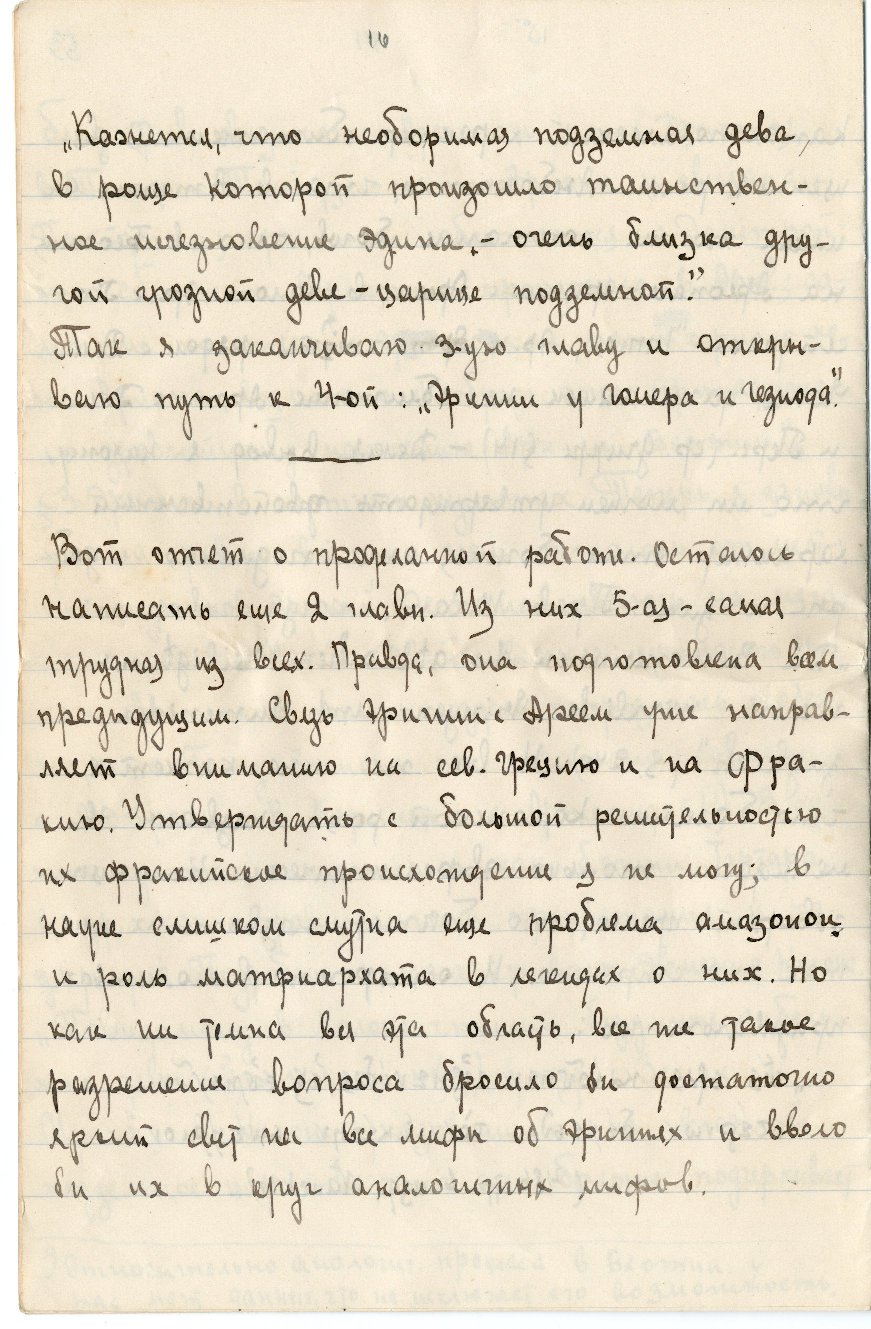 16
„Кажется, что необоримая подземная дева,
в роще которой произошло таинствен-
ное исчезновение Эдипа, – очень близка дру-
гой грозной деве – царице подземной".
Так я заканчиваю 3-ую главу и откры-
ваю путь к 4-ой: „Эринии у Гомера и Гезиода".
Вот отчет о проделанной работе. Осталось
написать еще 2 главы. Из них 5-ая – самая
трудная из всех. Правда, она подготовлена всем
предыдущим. Связь Эринии с Ареем уже направ-
ляет вниманию на сев. Грецию и на Фра-
кию. Утверждать с большой решительностью
их фракийское происхождение я не могу; в
науке слишком смутна еще проблема амазонок
и роль матриархата в легендах о них. Но
как ни темна вся эта область, все же такое
разрешение вопроса бросило бы достаточно
яркий свет на все мифы об Эриниях и ввело
бы их в круг аналогичных мифов.